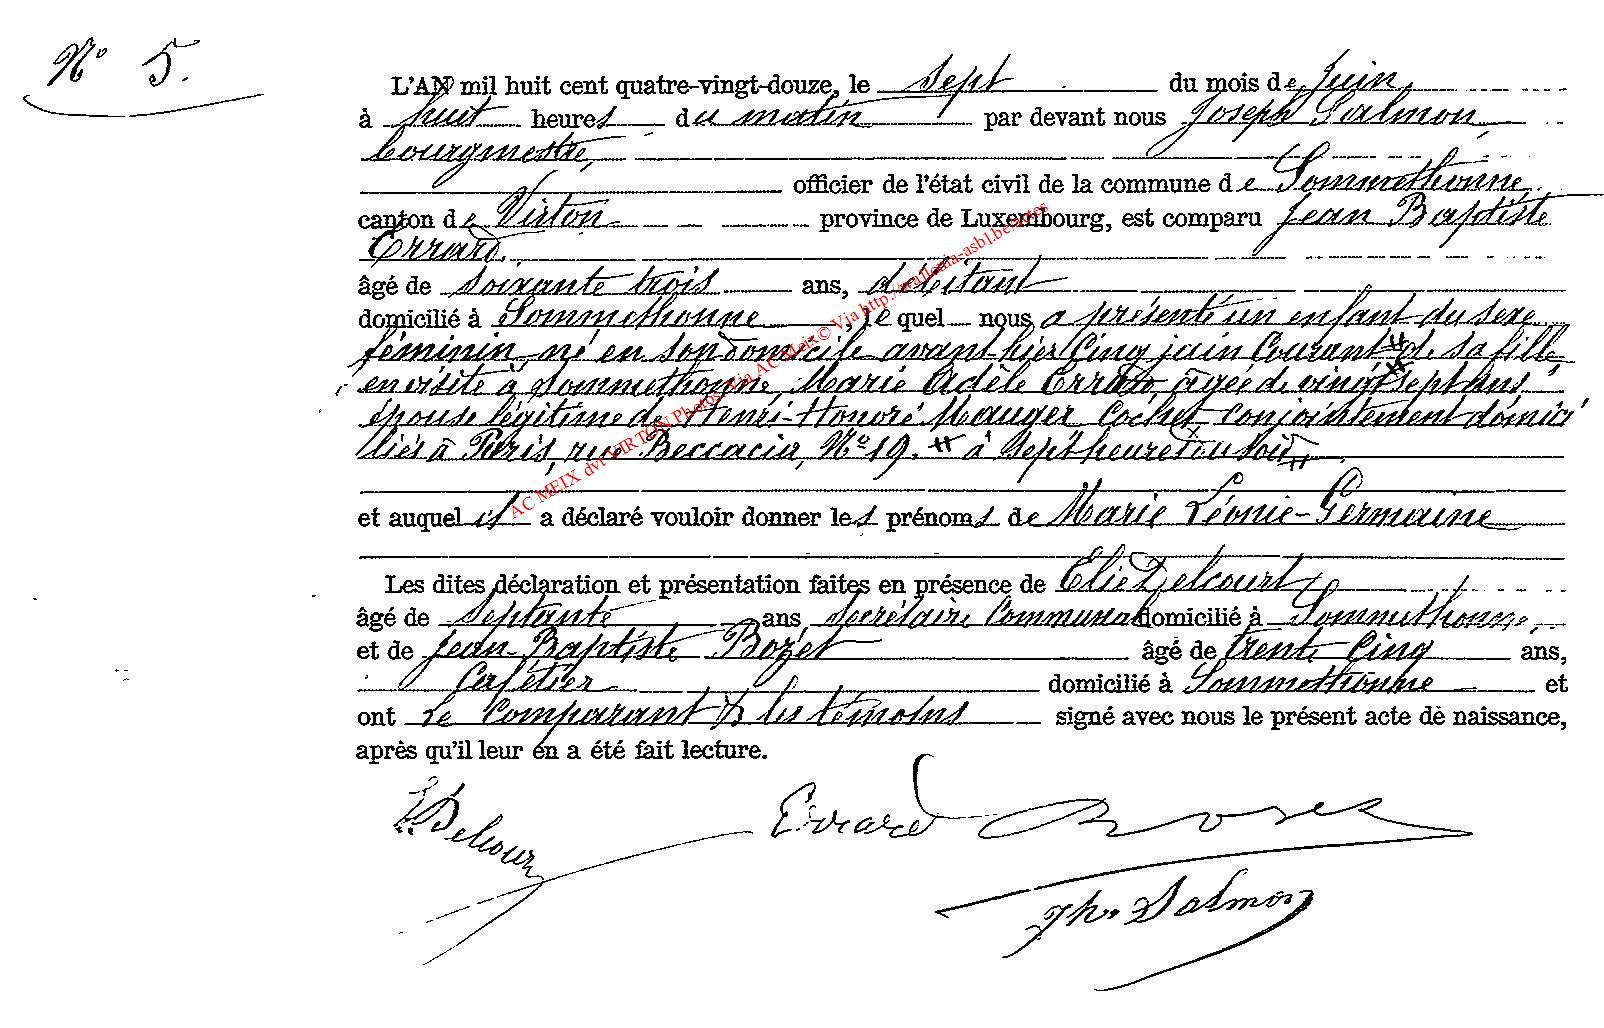 N° 5.
L'AN mil huit cent quatre-vingt-douze, le sept du mois de Juin
à huit heures du matin par devant nous Joseph Salmon,
bourgmestre,
officier de l'état civil de la commune de Sommethonne,
canton de Virton province de Luxembourg, est comparu Jean Baptiste
Errard.
âgé de soixante trois ans, débitant
domicilié à Sommethonne, lequel nous a présenté un enfant du sexe
féminin né en son domicile avant-hier Cinq juin Courant # de sa fille
en visite à Sommethonne, Marie Adèle Errard, agée de vingt sept ans
épouse légitime de Henri-Honoré Mauger cocher, conjointement domici
liés à Paris, rue Beccacia, N° 19. # à sept heures du soir #
et auquel il a déclaré vouloir donner les prénoms de Marie Léonie-Germaine
Les dites déclaration et présentation faites en présence de Elie Delcourt
âgé de septante ans Secrétaire Communal domicilié à Sommethonne,
et de Jean-Baptiste Bozet âgé de trente Cinq ans,
domicilié à Sommethonne et
ont le Comparant & les témoins signé avec nous le présent acte de naissance,
après qu'il leur en a été fait lecture.
E. Delcour Evrard Boset
Jh. Salmon
AC MEIX dvt VIRTON Photos Via AC Meix© Via http://wallonia-asbl.be/actes